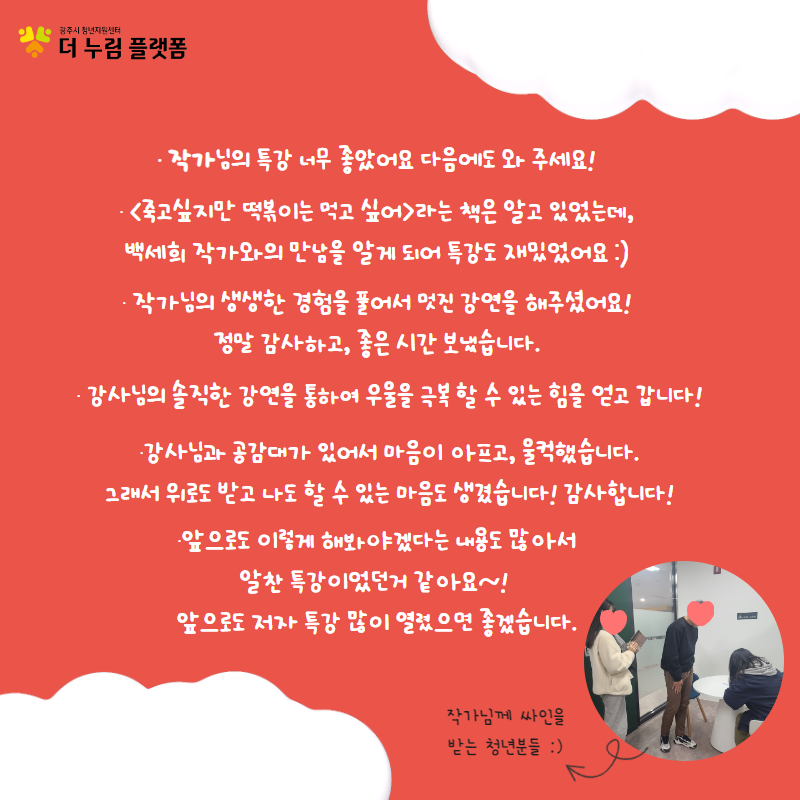 광주시 청년지원센터
더 누림 플랫폼
· 작가님의 특강 너무 좋았어요 다음에도 와 주세요!
· <죽고싶지만 떡볶이는 먹고 싶어>라는 책은 알고 있었는데,
백세희 작가와의 만남을 알게 되어 특강도 재밌었어요 :)
· 작가님의 생생한 경험을 풀어서 멋진 강연을 해주셨어요!
정말 감사하고, 좋은 시간 보냈습니다.
· 강사님의 솔직한 강연을 통하여 우울을 극복 할 수 있는 힘을 얻고 갑니다!
·강사님과 공감대가 있어서 마음이 아프고, 울컥했습니다.
그래서 위로도 받고 나도 할 수 있는 마음도 생겼습니다! 감사합니다!
·앞으로도 이렇게 해봐야겠다는 내용도 많아서
알찬 특강이었던거 같아요~!
앞으로도 저자 특강 많이 열렸으면 좋겠습니다.
작가님께 싸인을
받는 청년분들 :)